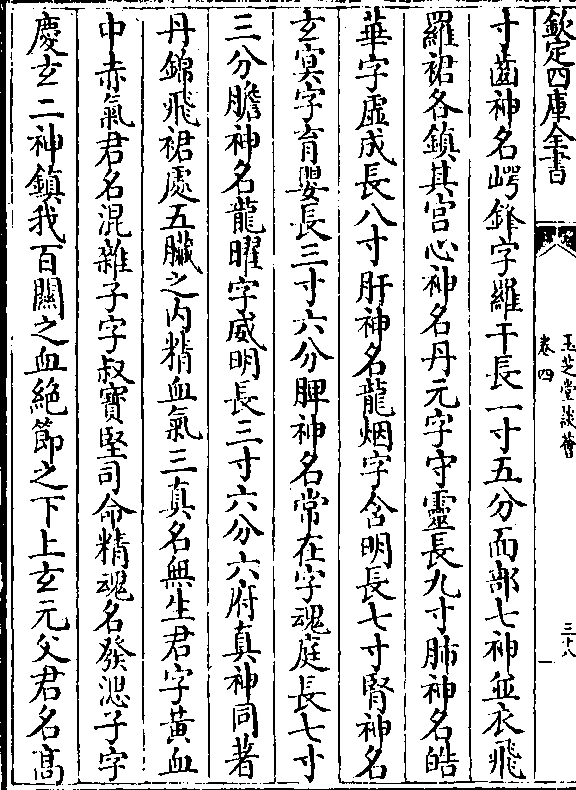 欽定四庫全書
玉芝堂談薈
卷四
三十八
寸齒神名崿鋒字羅千長一寸五分而部七神並衣飛
羅裙各鎮其宫心神名丹元字守靈長九寸肺神名皓
華字虛成長八寸肝神名龍烟字含明長七寸腎神名
玄㝠字育嬰長三寸六分脾神名常在字魂庭長七寸
三分膽神名龍曜字威明長三寸六分六府真神同著
丹錦飛裙處五臟之内精血氣三真名無生君字黄血
中赤氣君名混雜子字叔寶堅司命精魂名發㴒子字
慶玄二神鎮我百關之血絶節之下上玄元父君名髙